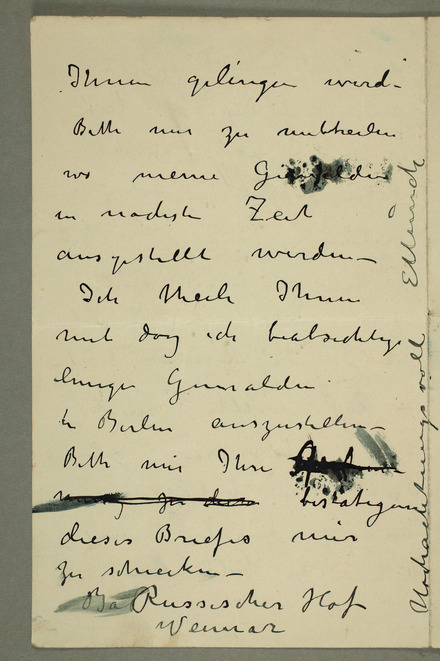 Ihnen gelingen wird –
Bitte mir zu mittheilen
wo meine Gemälden
in nächste Zeit
ausgestellt werden –
Ich theile Ihnen
mit dass ich beabsichtige
einige Gemälden
in Berlin auszustellen –
Bitte mir Ihre
zu diese bestätigen
dieses Briefes mir
zu schicken –
Russischer Hof
Weimar
Hochachtungsvoll EMunch